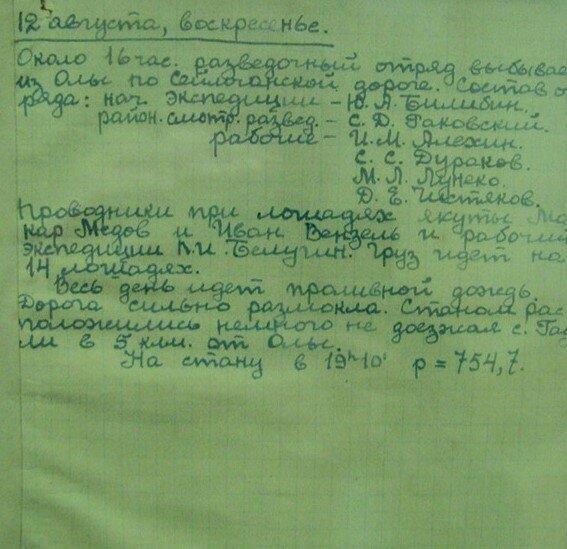 12 августа, воскресенье.
Около 16 час. разведочный отряд выбывае
из Олы по Сеймчанской дороге. Состав о
ряда: нач. экспедиции – Ю. А. Билибин.
район. смотр. развед. – С. Д. Раковский.
рабочие – И. М. Алехин.
С. С. Дураков.
М. Л. Лунеко.
Д. Е. Чистяков.
Проводники при лошадях якуты Ма
кар Медов и Иван Вензель и рабочий
экспедиции П. И. Белугин. Груз идет на
14 лошадях.
Весь день идет проливной дождь.
Дорога сильно размокла. Станом рас
положились немного не доезжая с. Гад
ли в 5 клм. от Олы.
На стану в 19ʰ 10' р = 754,7.